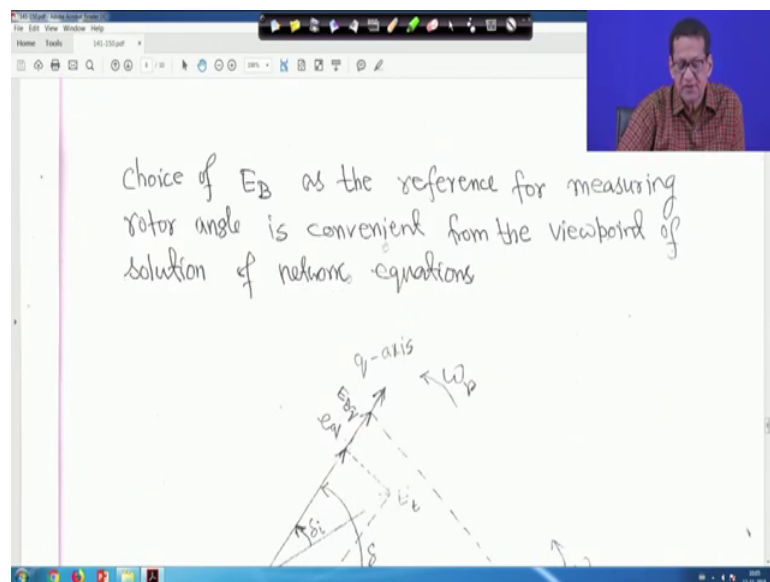 141-150.pdf - Adobe Acrobat Reader DC
File Edit View Window Help
Home Tools 141-150.pdf ×
Choice of E_B as the reference for measuring
rotor angle is convenient from the viewpoint of
solution of network equations
q-axis
ω_r
E_q
e_q
E_t
δ_i
δ